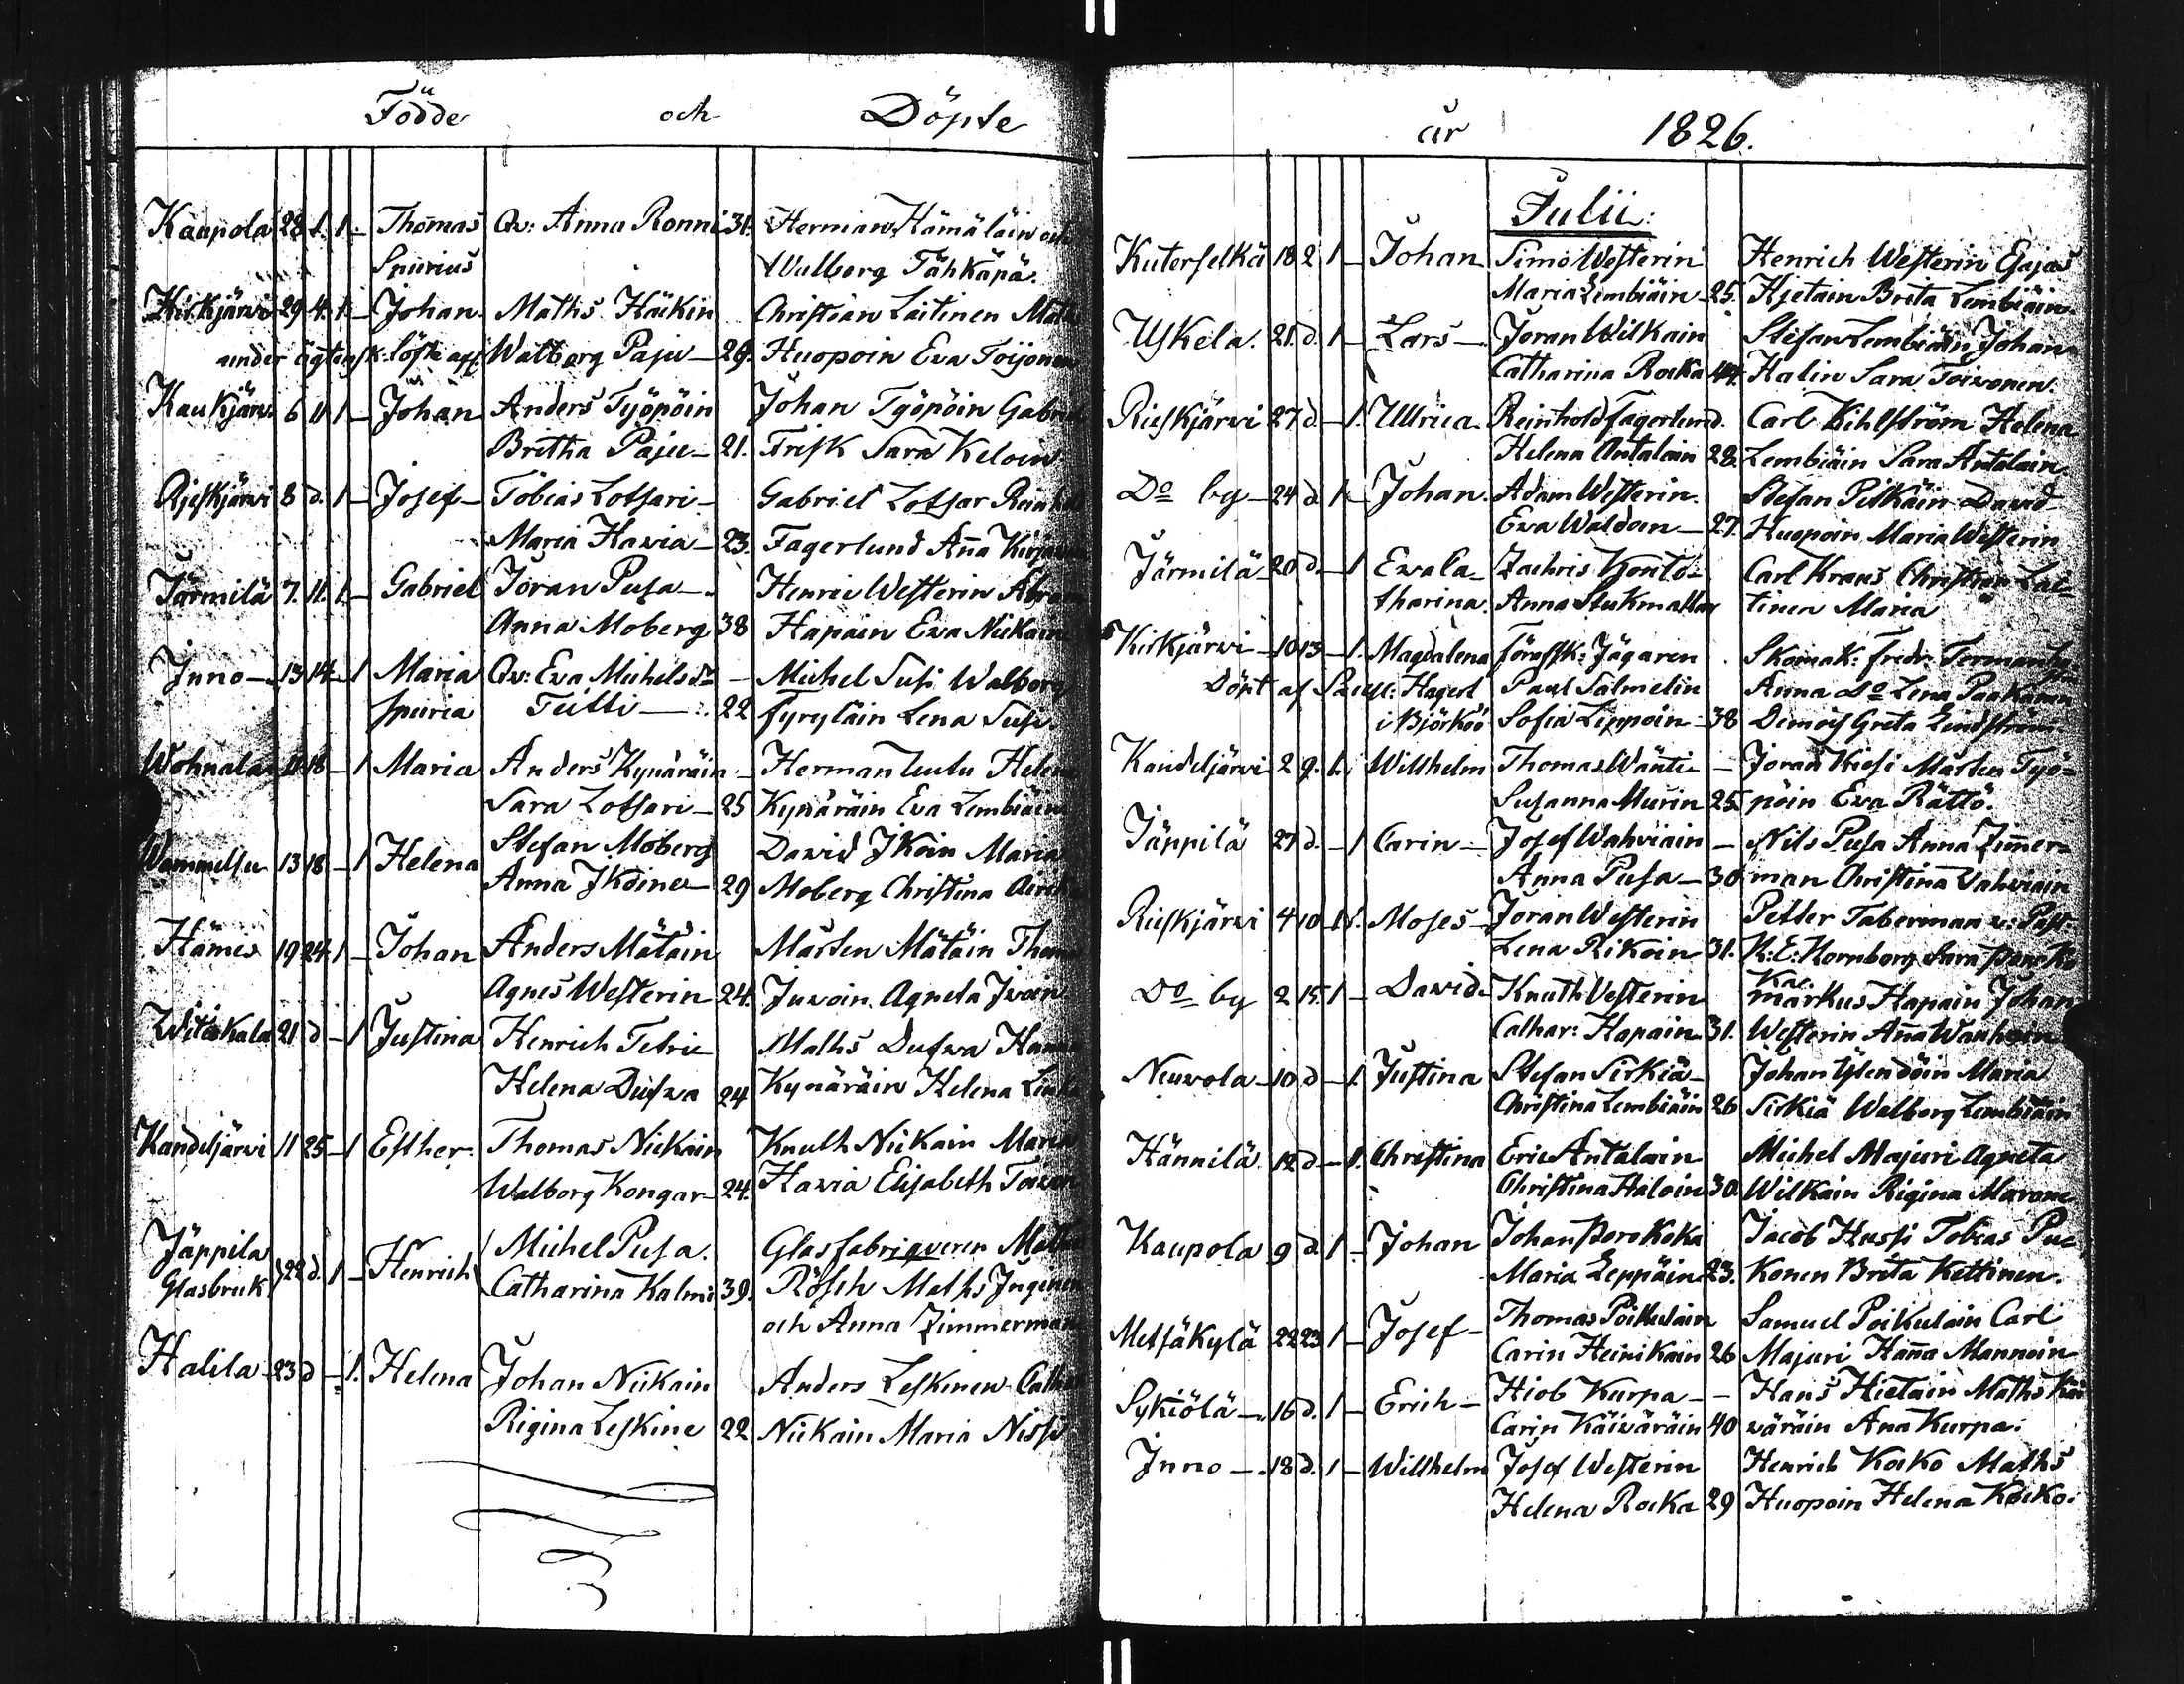 Födde och Döpte
Kaupola 28 1. 1. – Thomas Qv: Anna Ronni 31. Herman Hämäläin och
Spurius Walborg Tähkäpä.
Kirkjärvi 29 4. 1. – Johan Maths Häikin Christian Laitinen
under ägtensk: löfte Walborg Paju – 29. Huopoin Eva Toijonen
Kaukjärvi 6 11 1 – Johan Anders Työpöin Johan Työpöin
Britha Paju – 21. Frisk Sara Keloin
Rieskjärvi 8 d. 1 – Josef – Tobias Lotsari – Gabriel Lotsar
Maria Hawia – 23. Fagerlund Anna
Järmilä 7. 11. 1. – Gabriel Jöran Pusa – Henric Westerin
Anna Moberg 38 Hapain Eva Niikain
Inno – 13 14 – 1 Maria Qv: Eva Michelsdr – Michel Susi Walborg
spuria Teitti – 22 Fyryläin Lena Susi
Wohnala 11 18 – 1 Maria Anders Kynäräin – Herman Leutu Helena
Sara Lotsari – 25 Kynäräin Eva Lembiäin
Wammelsu 13 18 – 1 Helena Stefan Moberg David Ikoin Maria
Anna Ikoine – 29 Moberg Christina
Hämes 19 24 1 – Johan Anders Mätäin Mårten Mätäin
Agnes Westerin 24. Juvoin Agneta Ivoin
Witikala 21 d – 1 Justina Henrich Tetri Maths Dufva
Helena Dufva 24 Kynäräin Helena
Kandeljärvi 11 25 – 1 Esther Thomas Niikain Knuth Niikain Maria
Walborg Kongar – 24. Hawia Elisabeth
Jäppila Michel Pusa. Glasfabriqueren
Glasbruk 22 d. 1 – Henrich Catharina Kalmi 39. Rösch Maths
och Anna Zimmerman
Halila – 23 d – 1. Helena Johan Niikain Anders Leskinen
Rigina Leskine 22 Niikain Maria
år 1826.
Julii:
Kuterselkä 18 2 1 – Johan Simo Westerin Henrich Westerin Esajas
Maria Lembiäin – 25. Hjetain Brita Lembiäin.
Uskela. 21. d. 1 – Lars – Jöran Wilkain Stefan Lembiäin Johan
Catharina Rocka 44. Halin Sara Toivonen.
Rieskjärvi 27 d – 1. Ullrica Reinhold Fagerlund. Carl Kihlström Helena
Helena Antalain 28. Lembiäin Sara Antalain.
Do by – 24 d 1. – Johan. Adam Westerin. Stefan Pitkäin David
Eva Waldoin – 27. Huopoin Maria Westerin
Järmilä – 20 d. – 1 Eva Ca- Zachris Konto- Carl Kraus Christian Lai-
tharina. Anna tinen Maria
Kirkjärvi – 10 13 – 1. Magdalena Jägaren Skomak: Fredr.
Döpt af Hagert Paul Salmelin Anna Do Lena
i Björkö Sofia Lippoin – 38 Greta Lindström
Kandeljärvi 2 9. 1. Willhelm Thomas Wänti – Jöran Kiesi Mårten Työ-
Susanna Murin 25. pöin Eva Rättö.
Jäppilä 27 d. – 1 Carin – Josef Wahviain – Nils Pusa Anna Zimmer-
Anna Pusa – 30 man Christina Wahviain
Rieskjärvi 4 10 Moses – Jöran Westerin Petter Taberman
Lena Rikoin 31. K: E: Hornborg Sara
Do by 2 15. 1 – David. Knuth Westerin Markus Hapain Johan
Cathar: Hapain 31. Westerin Anna Wanhain
Neuvola – 10 d – 1. Justina Stefan Sirkiä – Johan Maria
Christina Lembiäin 26 Sirkiä Walborg Lembiäin
Hännilä 12 d – 1. Christina Eric Antalain Michel Majuri Agneta
Christina Haloin 30. Wilkain Rigina
Kaupola 9 d. 1 – Johan Johan Porokoka Jacob Hussi Tobias Pu-
Maria Leppäin 23. konen Brita Kettinen.
Metsäkylä 22 23 1 – Josef – Thomas Poikulain Samuel Poikulain Carl
Carin Heinikain 26 Majuri Hanna Mannoin
Sykiölä – 16 d. 1 – Erich – Hiob Kurpa – – Hans Hietain Maths Käi
Carin Käiväräin 40 väräin Ana Kurpa.
Inno – 18 d. 1 – Willhelm Josef Westerin Henrich Koiko Maths
Helena Rocka 29 Huopoin Helena Koiko.